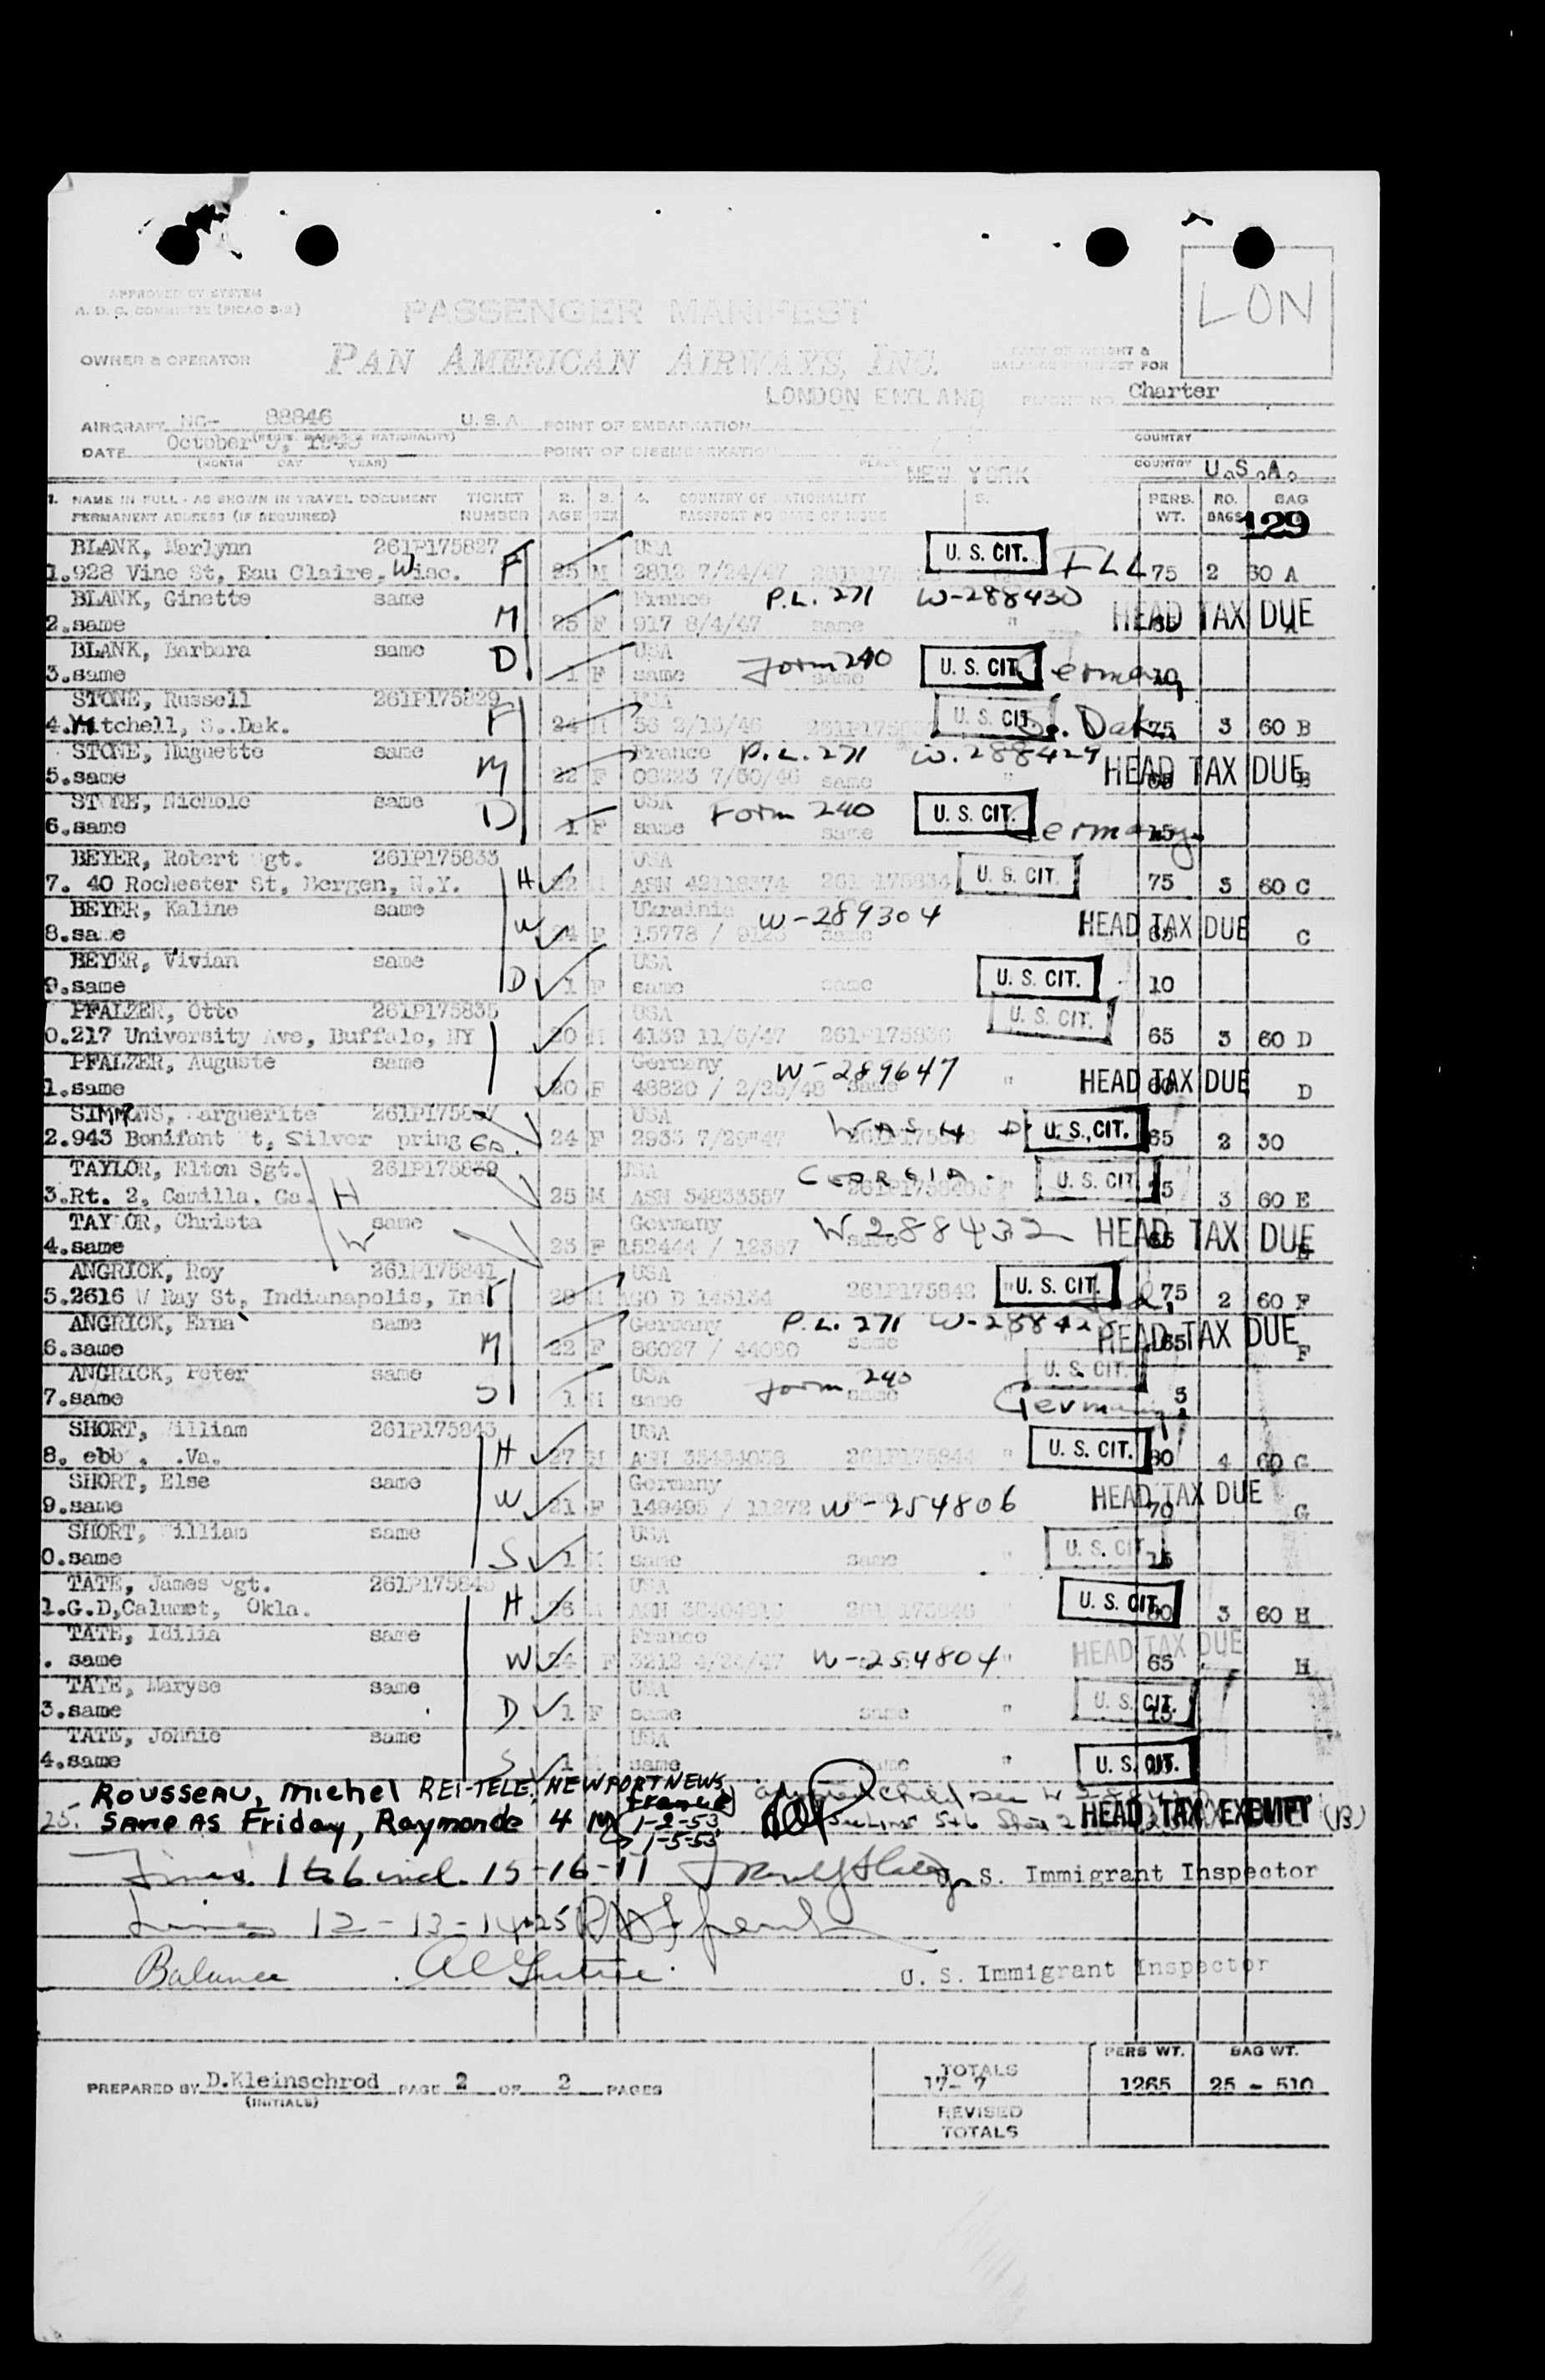 LON
APPROVED BY SYSTEM
A. D. C. COMMITTEE (PICAO
PASSENGER MANIFEST
OWNER & OPERATOR PAN AMERICAN AIRWAYS, INC. PART OF WEIGHT & BALANCE MANIFEST FOR
LONDON ENGLAND FLIGHT NO. Charter
AIRCRAFT NC- 88846 U.S.A POINT OF EMBARKATION
(REGIS. MARKS & NATIONALITY) COUNTRY
DATE October POINT OF DISEMBARKATION PLACE NEW YORK COUNTRY U.S.A.
(MONTH DAY YEAR)
1. NAME IN FULL - AS SHOWN IN TRAVEL DOCUMENT TICKET 2. 3. 4. COUNTRY OF NATIONALITY 5. PERS. NO. BAG
PERMANENT ADDRESS (IF REQUIRED) NUMBER AGE SEX PASSPORT NO DATE OF ISSUE WT. BAGS 129
BLANK, Marlynn 261P175827 USA U. S. CIT.
1.928 Vine St, Eau Claire, Wisc. F 25 M 2812 7/24/47 75 2 30 A
BLANK, Ginette same France P.L. 271 W-288430 HEAD TAX DUE
2.same M 25 F 917 8/4/47 same " A
BLANK, Barbara same USA Form 240 U. S. CIT. Germany
3.same D 1 F same same 10
STONE, Russell 261P175829 USA U. S. CIT. So. Dak.
4.Mitchell, S..Dak. F 24 M 56 2/13/46 75 3 60 B
STONE, Huguette same France P.L. 271 W.288429 HEAD TAX DUE
5.same M 22 F same " B
STONE, Nichole same USA Form 240 U. S. CIT. Germany.
6.same D 1 F same same 15
BEYER, Robert Sgt. 261P175833 USA U. S. CIT.
7. 40 Rochester St, Bergen, N.Y. H 22 M ASN 42118374 75 3 60 C
BEYER, Kaline same Ukrainia W-289304 HEAD TAX DUE
8.sa e W 24 F 15778 / same C
BEYER, Vivian same USA U. S. CIT.
9.same D 1 F same same 10
PFALZER, Otto 261P175835 USA U. S. CIT.
0.217 University Ave, Buffalo, NY 20 M 4139 11/6/47 261P175836 65 3 60 D
PFALZER, Auguste same Germany W-289647 HEAD TAX DUE
1.same 20 F 48820 / 2/25/48 same " D
SIMMONS, Marguerite USA WASH D U. S. CIT.
2.943 Bonifant St, Silver pring GA. 24 F 2933 7/29"47 65 2 30
TAYLOR, Elton Sgt. 261P175839 USA GEORGIA. U. S. CIT
3.Rt. 2, Camilla, Ga. H 25 M ASN 34833557 3 60 E
TAYLOR, Christa same Germany W288432 HEAD TAX DUE
4.same W 23 F 152444 / same E
ANGRICK, Roy 261P175841 USA U. S. CIT.
5.2616 W Ray St, Indianapolis, Ind F 28 M AGO D 145134 261P175842 " 75 2 60 F
ANGRICK, Erna same Germany P.L. 271 HEAD TAX DUE
6.same M 22 F 86027 / 44080 same 65 F
ANGRICK, Peter same USA Form 240 U. S. CIT.
7.same S 1 M same same Germany 5
SHORT, illiam 261P175843 USA U. S. CIT.
8. ebb . .Va. H 27 M 261P175844 " 80 4 60 G
SHORT, Else same Germany HEAD TAX DUE
9.same W 21 F 149495 / 11272 W-254806 70 G
SHORT, illiam same USA U. S. CIT
0.same S 1 M same same " 15
TATE, James Sgt. USA U. S. CIT.
1.G.D,Calumet, Okla. H 26 80 3 60 H
TATE, Idilia same France HEAD TAX DUE
. same W 24 F 3212 4/24/47 W-254804 " 65 H
TATE, Maryse same USA U. S. CIT.
3.same D 1 F same same " 15
TATE, Johnie same USA
4.same S 1 same same " U. S. CIT.
ROUSSEAU, Michel REI-TELE. NEWPORT NEWS France
25. SAME AS Friday, Raymonde 4 M 1-2-53 HEAD TAX EXEMPT (13)
1-5-53
Lines 1 to 6 incl. 15-16-17 U. S. Immigrant Inspector
Lines 12-13-14+25
Balance U. S. Immigrant Inspector
PERS WT. BAG WT.
PREPARED BY D.Kleinschrod PAGE 2 OF 2 PAGES TOTALS
(INITIALS) 17- 7 1265 25 - 510
REVISED
TOTALS